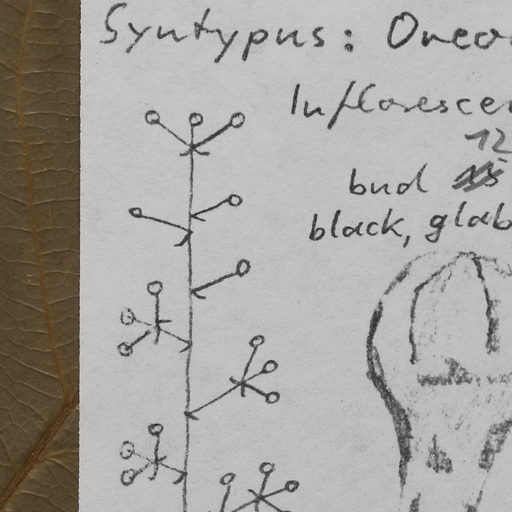 Syntypus: Oreo
Inflorescen
12
bud
black, glab